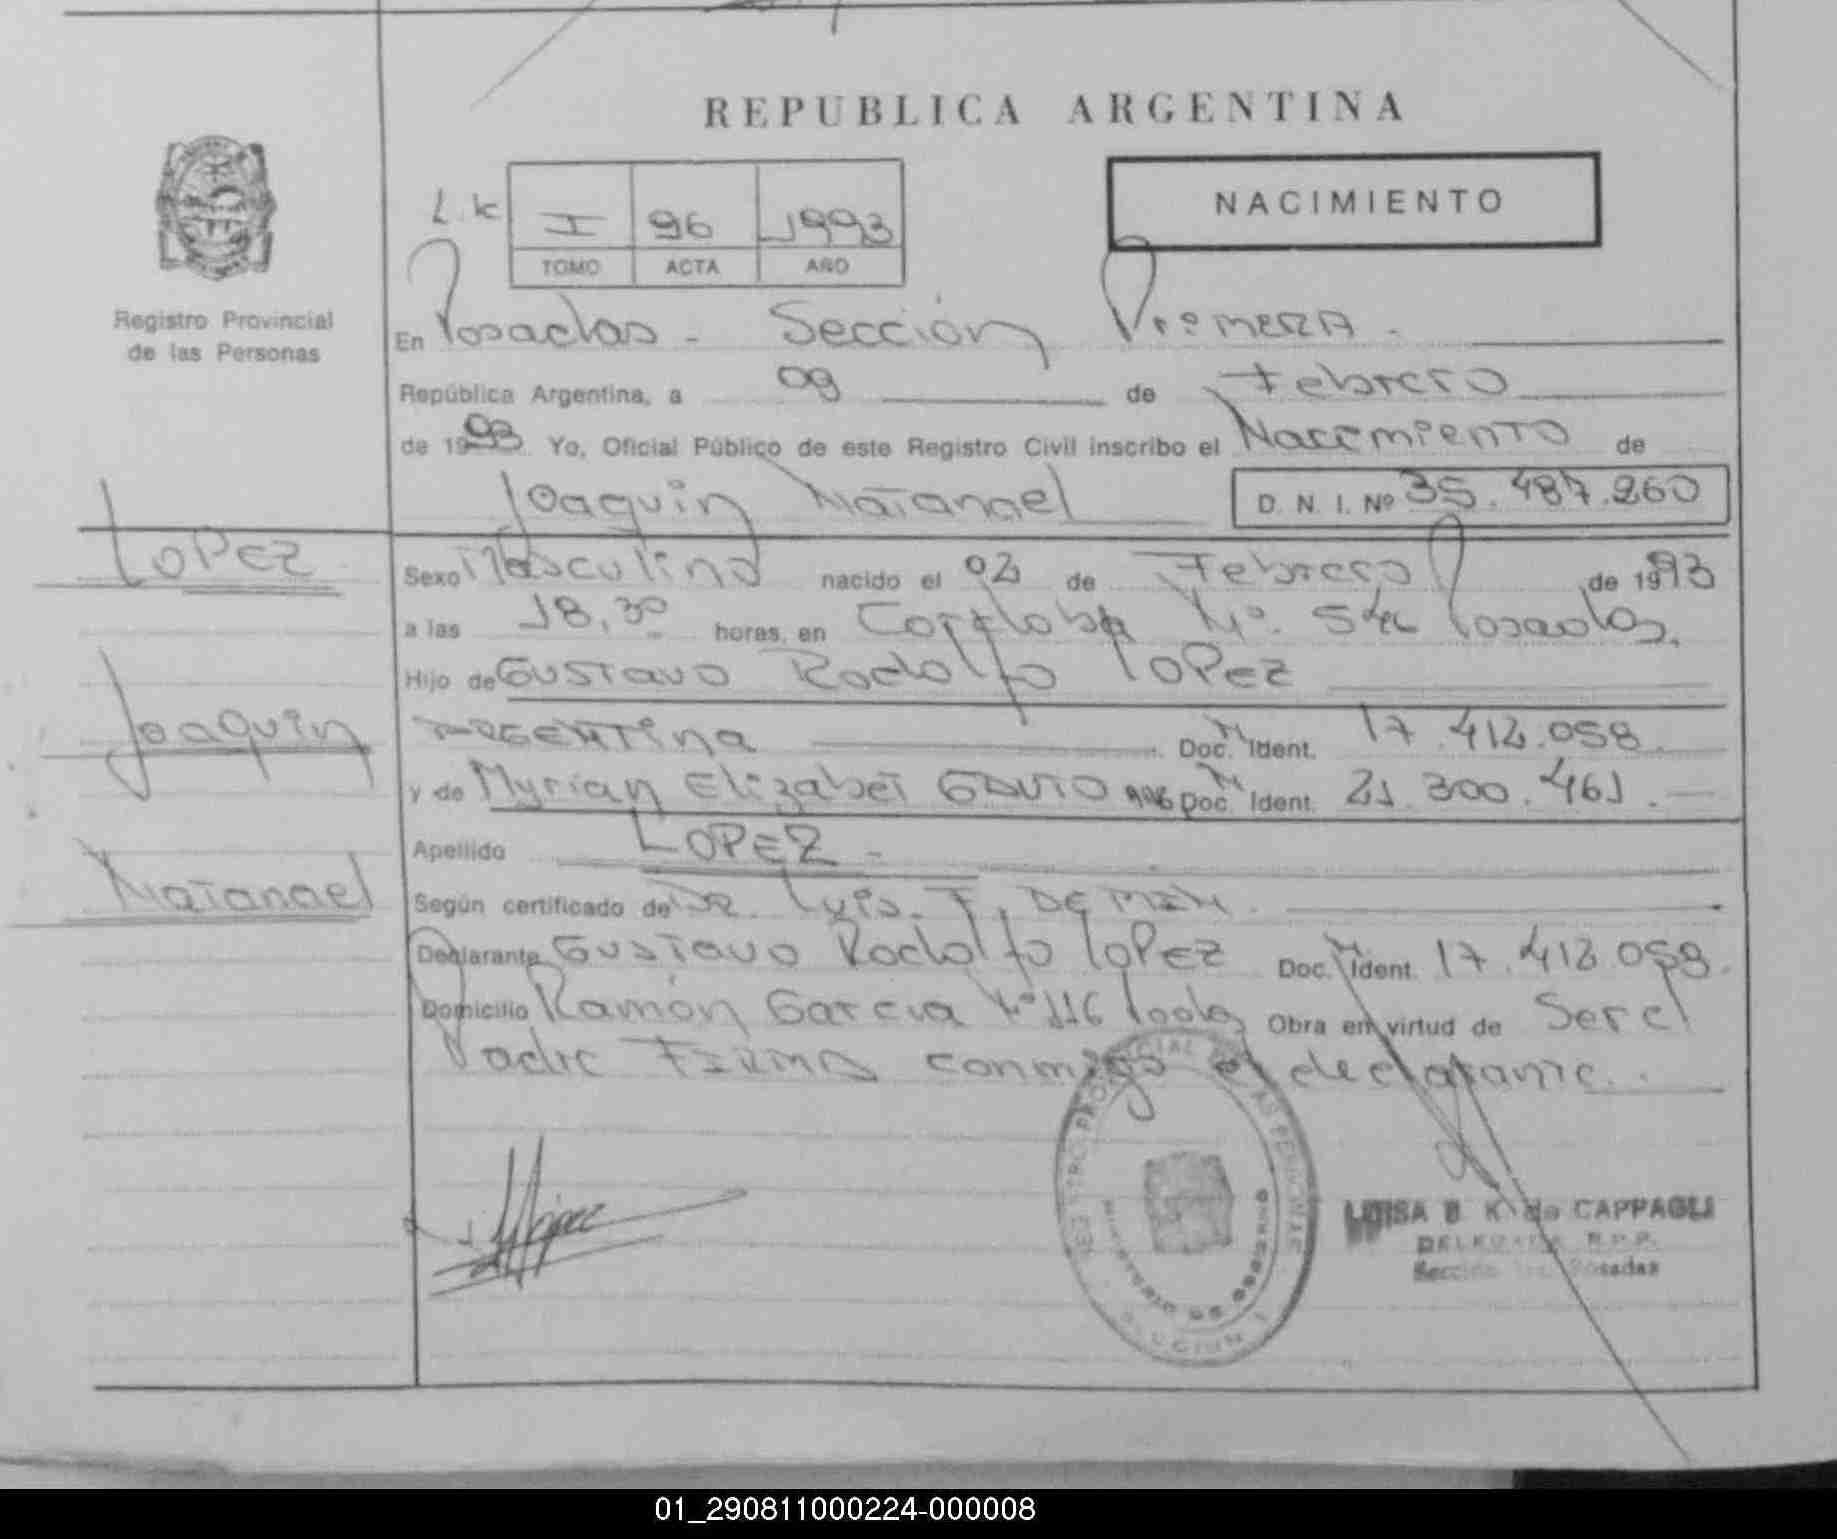 REPUBLICA ARGENTINA
NACIMIENTO
I 96 1993
TOMO ACTA AÑO
Registro Provincial
de las Personas
En Posadas - Sección Primera -
República Argentina, a 09 de Febrero
de 1993 Yo, Oficial Público de este Registro Civil inscribo el Nacimiento de
Joaquin Natanael D. N. I. Nº 35.487.260
LOPEZ
Sexo Masculino nacido el 02 de Febrero de 1993
a las 18,30 horas, en Cordoba Nº Posadas.
Hijo de Gustavo Rodolfo LOPEZ
Joaquin
Argentina Doc. Ident. 17.412.058
y de Myrian Elizabet GAUTO Doc. Ident. 21.300.461.
Apellido LOPEZ -
Natanael
Según certificado de DR. Luis. F.
Declarante Gustavo Rodolfo LOPEZ Doc. Ident. 17.412.058.
Domicilio Ramón Garcia Nº 116 Obra en virtud de Ser el
Padre FIRMA conmigo el declarante.
LUISA B. K. de CAPPAGLI
DELEGADA R.P.P.
Sección 1ra. Posadas
01_290811000224-000008